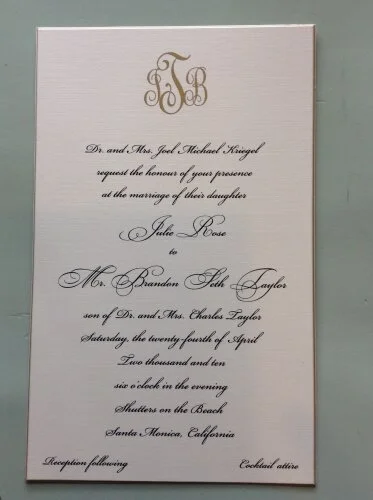 JTB
Dr. and Mrs. Joel Michael Kriegel
request the honour of your presence
at the marriage of their daughter
Julie Rose
to
Mr. Brandon Seth Taylor
son of Dr. and Mrs. Charles Taylor
Saturday, the twenty-fourth of April
Two thousand and ten
six o'clock in the evening
Shutters on the Beach
Santa Monica, California
Reception following
Cocktail attire